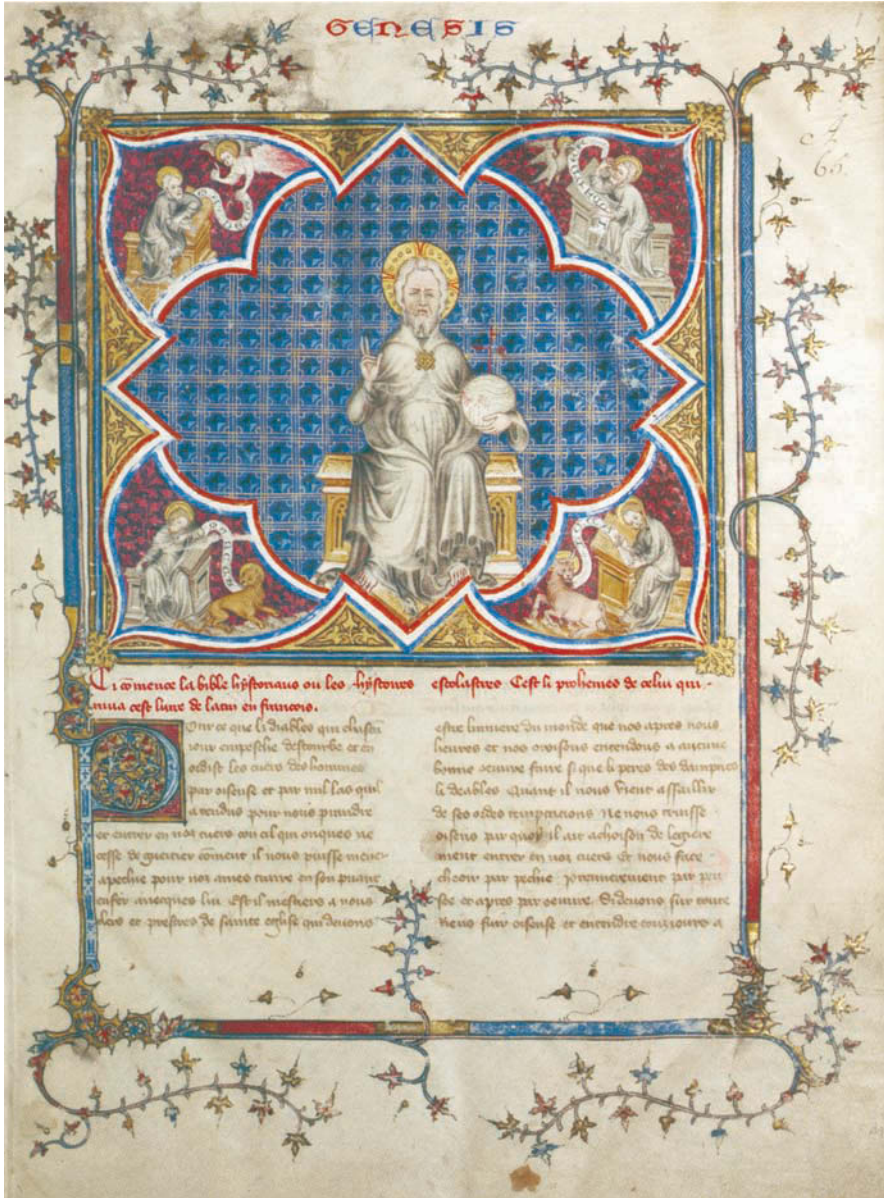 GENESIS
A
c
65.
Ci comence la bible hystoriaus ou les hystoires escolastres Cest li prohemes de celui qui
mist cest livre de latin en francois.
Pour ce que li diables qui chascun
iour empesche destourbe et en
ordist les cuers des hommes
par oiseuse et par mil las quil
a tendus pour nous prendre
et entrer en nos cuers con cil qui onques ne
cesse de guetier coment il nous puisse mener
a pechie pour nos ames traire en son puant
enfer avecques lui Est il mestiers a nous
clers et prestres de sainte eglise qui devons
estre lumiere du monde que nos apres nous
heures et nos oroisons entendons a aucune
bonne oeuvre faire si que li peres des dampnes
li deables Quant il nous vient assaillir
de ses ordes temptacions Ne nous truisse
oiseus par quoy il ait achoison de legiere
ment entrer en noz cuers et nous face
cheoir par pechie premierement par pen
see et apres par oeuvre Si devons sur toute
riens fuir oiseuse et entendre tousiours a